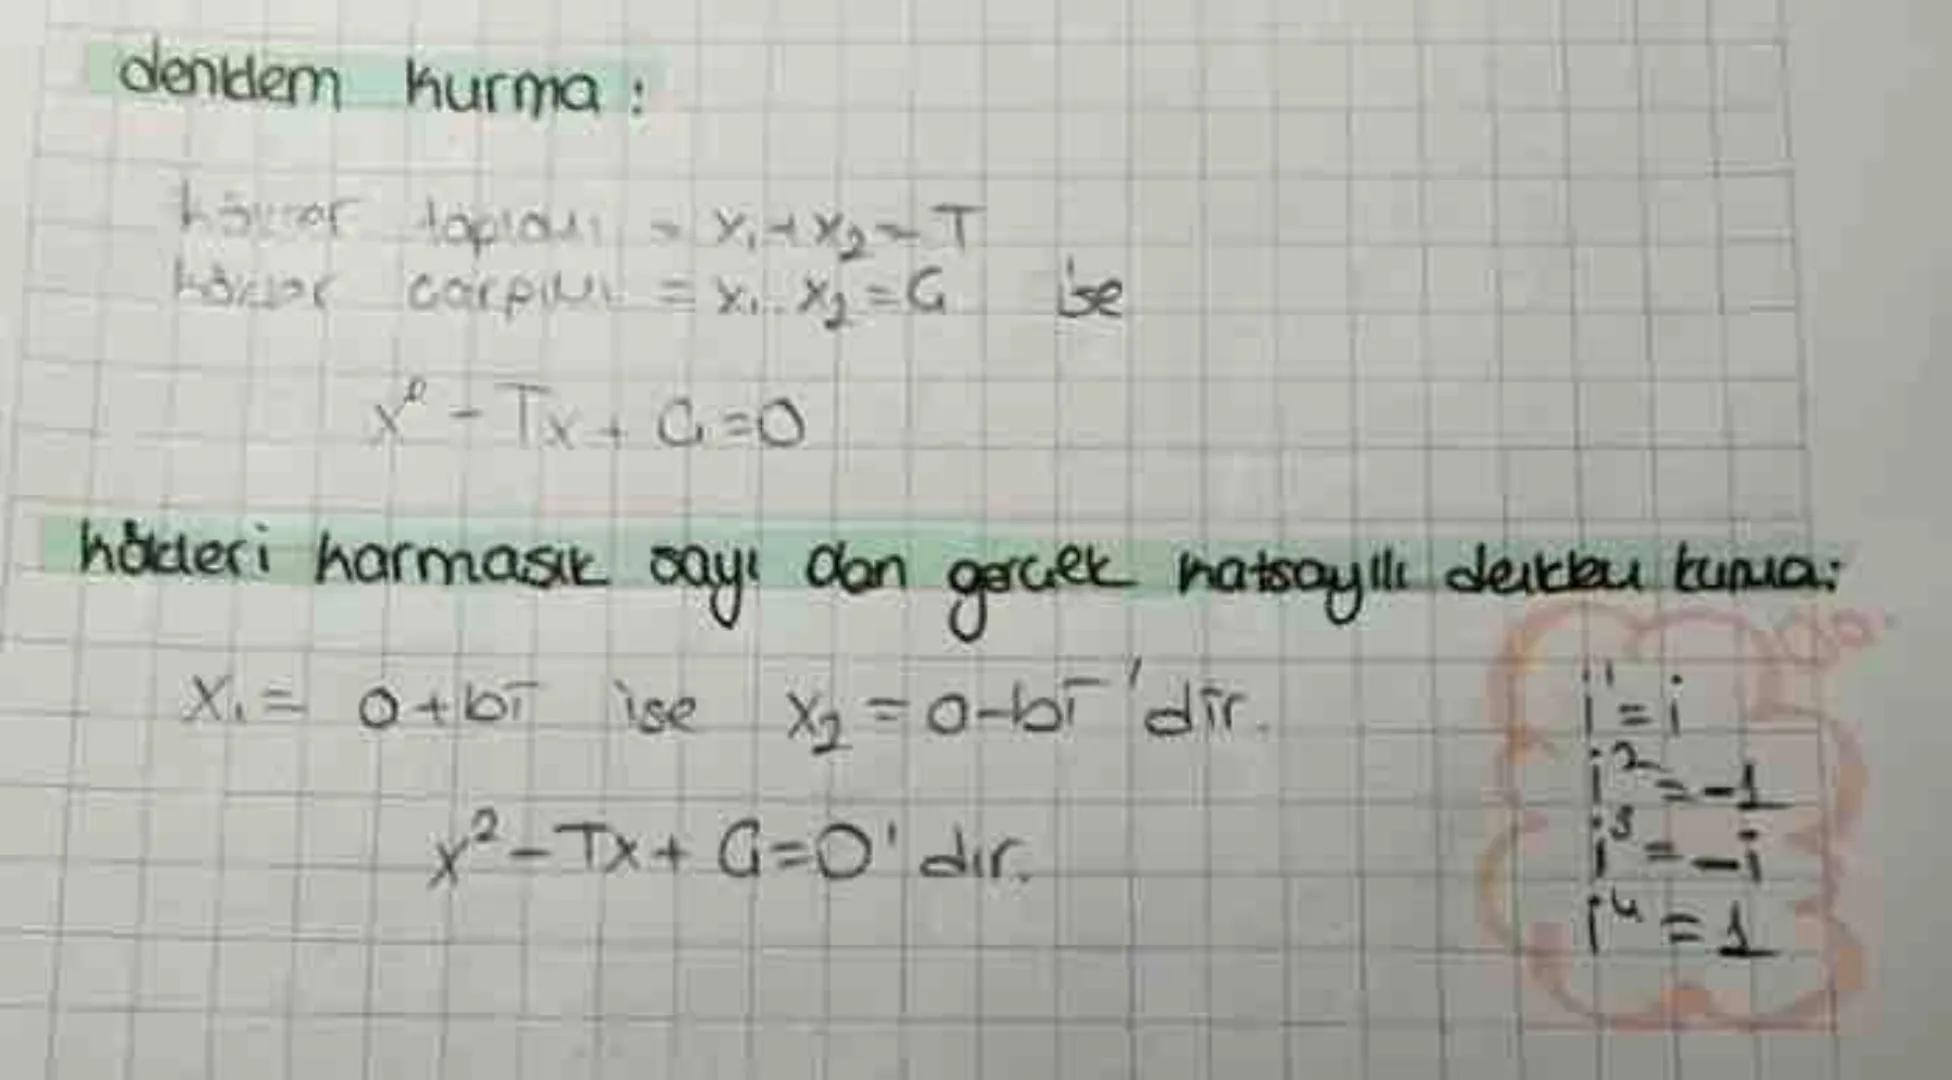 denklem kurma:
kökler toplamı = x₁+x₂ = T
kökler çarpımı = x₁.x₂ = G ise
x² - Tx + G = 0
kökleri karmaşık sayı olan gerçek katsayılı denklem kurma:
x₁ = a+bi ise x₂ = a-bi 'dir.
x² - Tx + G = 0' dır.
i¹ = i
i² = -1
i³ = -i
i⁴ = 1